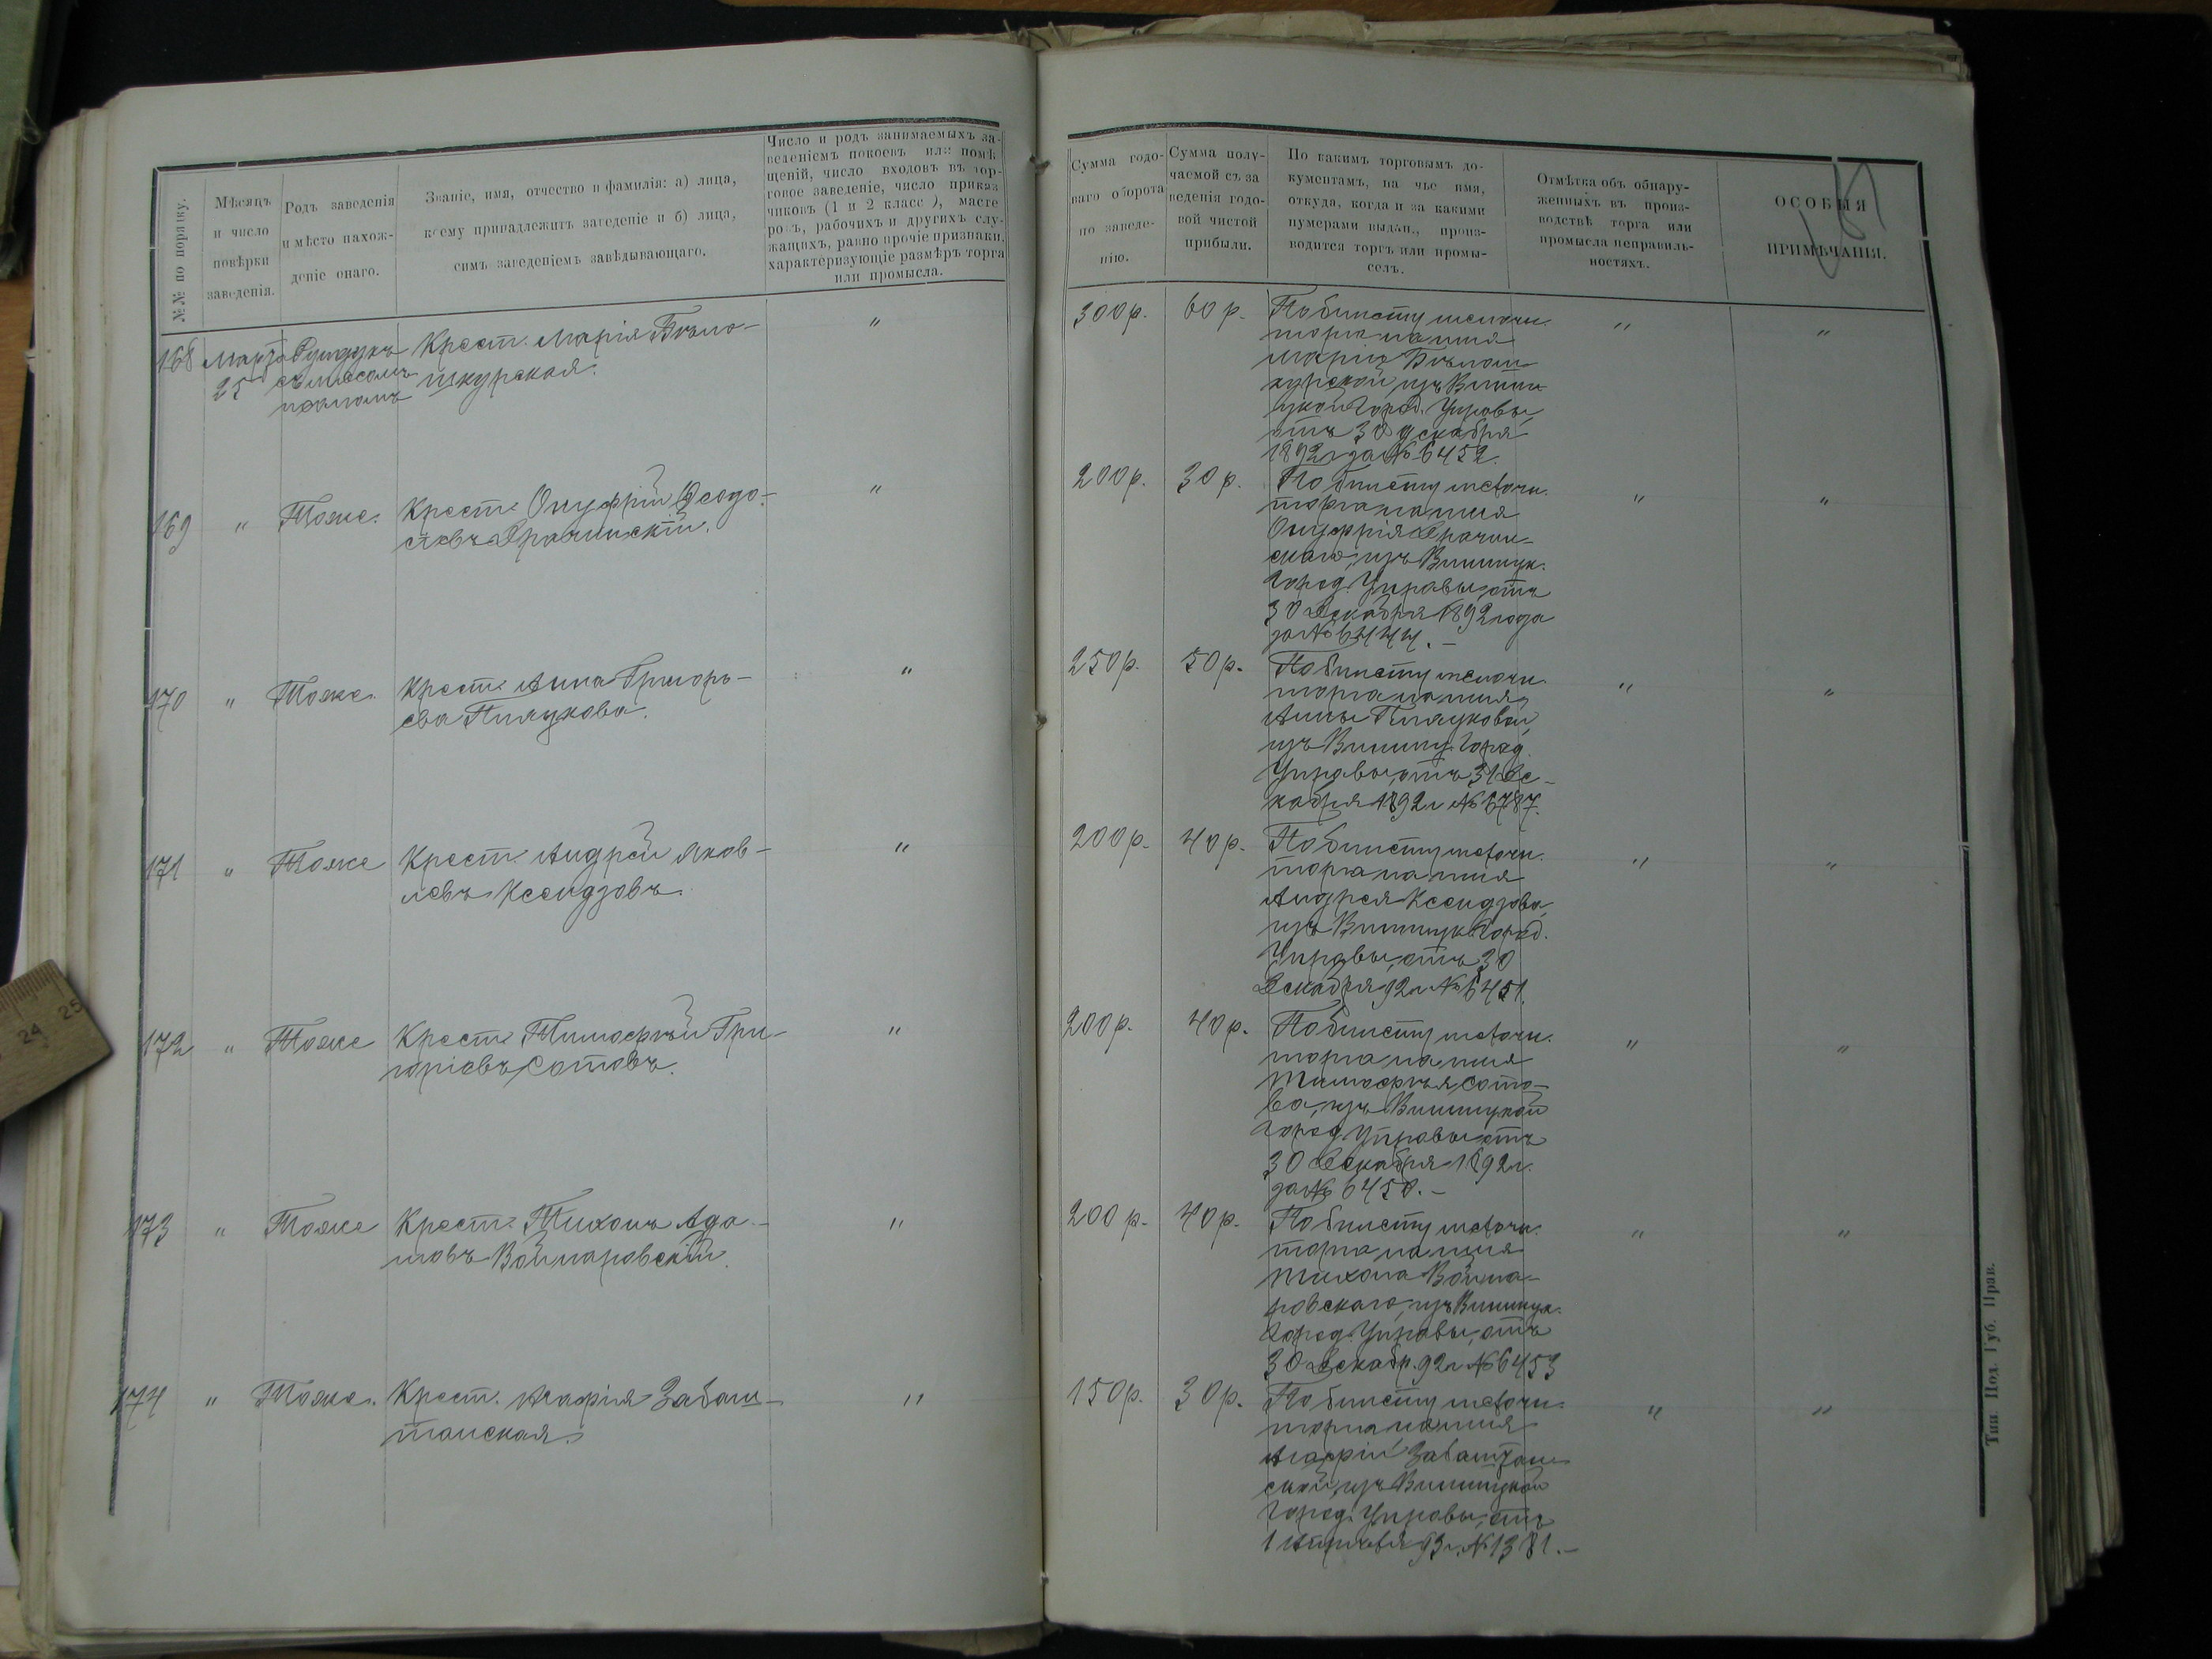 №№ по порядку.
Мѣсяцъ
и число
повѣрки
заведенія.
Родъ заведенія
и мѣсто нахож-
деніе онаго.
Званіе, имя, отчество и фамилія: а) лица,
коему принадлежитъ заведеніе и б) лица,
симъ заведеніемъ завѣдывающаго.
Число и родъ занимаемыхъ за-
веденіемъ покоевъ или помѣ
щеній, число входовъ въ тор-
говое заведеніе, число приказ
чиковъ (1 и 2 класс ), масте
ровъ, рабочихъ и другихъ слу-
жащихъ, равно прочіе признаки,
характеризующіе размѣръ торга
или промысла.
168 Марта
25
съ мясомъ
Крест. Марія Бѣло-
шкурская.
"
169 " Тоже. Крест. Онуфрій Ѳеодо-
сіевъ Драчинскій.
"
170 " Тоже. Крест. Анна Григорь-
ева
"
171 " Тоже Крест. Андрей Яков-
левъ Ксендзовъ.
"
172 " Тоже Крест. Тимофѣй Гри-
горіевъ Сотовъ.
"
173 " Тоже Крест. Тихонъ Ада-
мовъ Войнаровскій.
"
174 " Тоже. Крест. Агафія Заваш-
танская.
"
Сумма годо-
ваго оборота
по заведе-
нію.
Сумма полу-
чаемой съ за
веденія годо-
вой чистой
прибыли.
По какимъ торговымъ до-
кументамъ, на чье имя,
откуда, когда и за какими
нумерами выдан., произ-
водится торгъ или промы-
селъ.
Отмѣтка объ обнару-
женныхъ въ произ-
водствѣ торга или
промысла неправиль-
ностяхъ.
ОСОБЫЯ
ПРИМѢЧАНІЯ.
300 р. 60 р. По билету мелочн.
торга на имя
Маріи Бѣлош
курской изъ Винни
цкой Город. Управы,
отъ 30 декабря
1892 г за № 6452.
" "
200 р. 30 р. По билету мелочн.
торга на имя
Онуфрія Драчин-
скаго, изъ Винницк.
Город. Управы, отъ
30 Декабря 1892 года
за № 6444. –
" "
250 р. 50 р. По билету мелочн.
торга на имя
Анны
изъ Винниц. Город.
Управы, отъ 31 Де-
кабря 1892 г № 6787.
" "
200 р. 40 р. По билету мелочн.
торга на имя
Андрея Ксендзова,
изъ Винницк. Город.
Управы, отъ 30
Декабря 92 г № 6451.
" "
200 р. 40 р. По билету мелочн.
торга на имя
Тимофѣя Сото-
ва, изъ Винницкой
Город. Управы отъ
30 Декабря 1892 г.
за № 6450. –
" "
200 р. 40 р. По билету мелочн.
торга на имя
Тихона Война-
ровскаго, изъ Винницк.
Город. Управы, отъ
30 Декабр. 92 г № 6453
" "
150 р. 30 р. По билету мелочн.
торга на имя
Агафіи Завaштан-
ской, изъ Винницкой
Город. Управы, отъ
1 Апрѣля 93 г. № 1381. –
" "
Тип. Под. Губ. Прав.